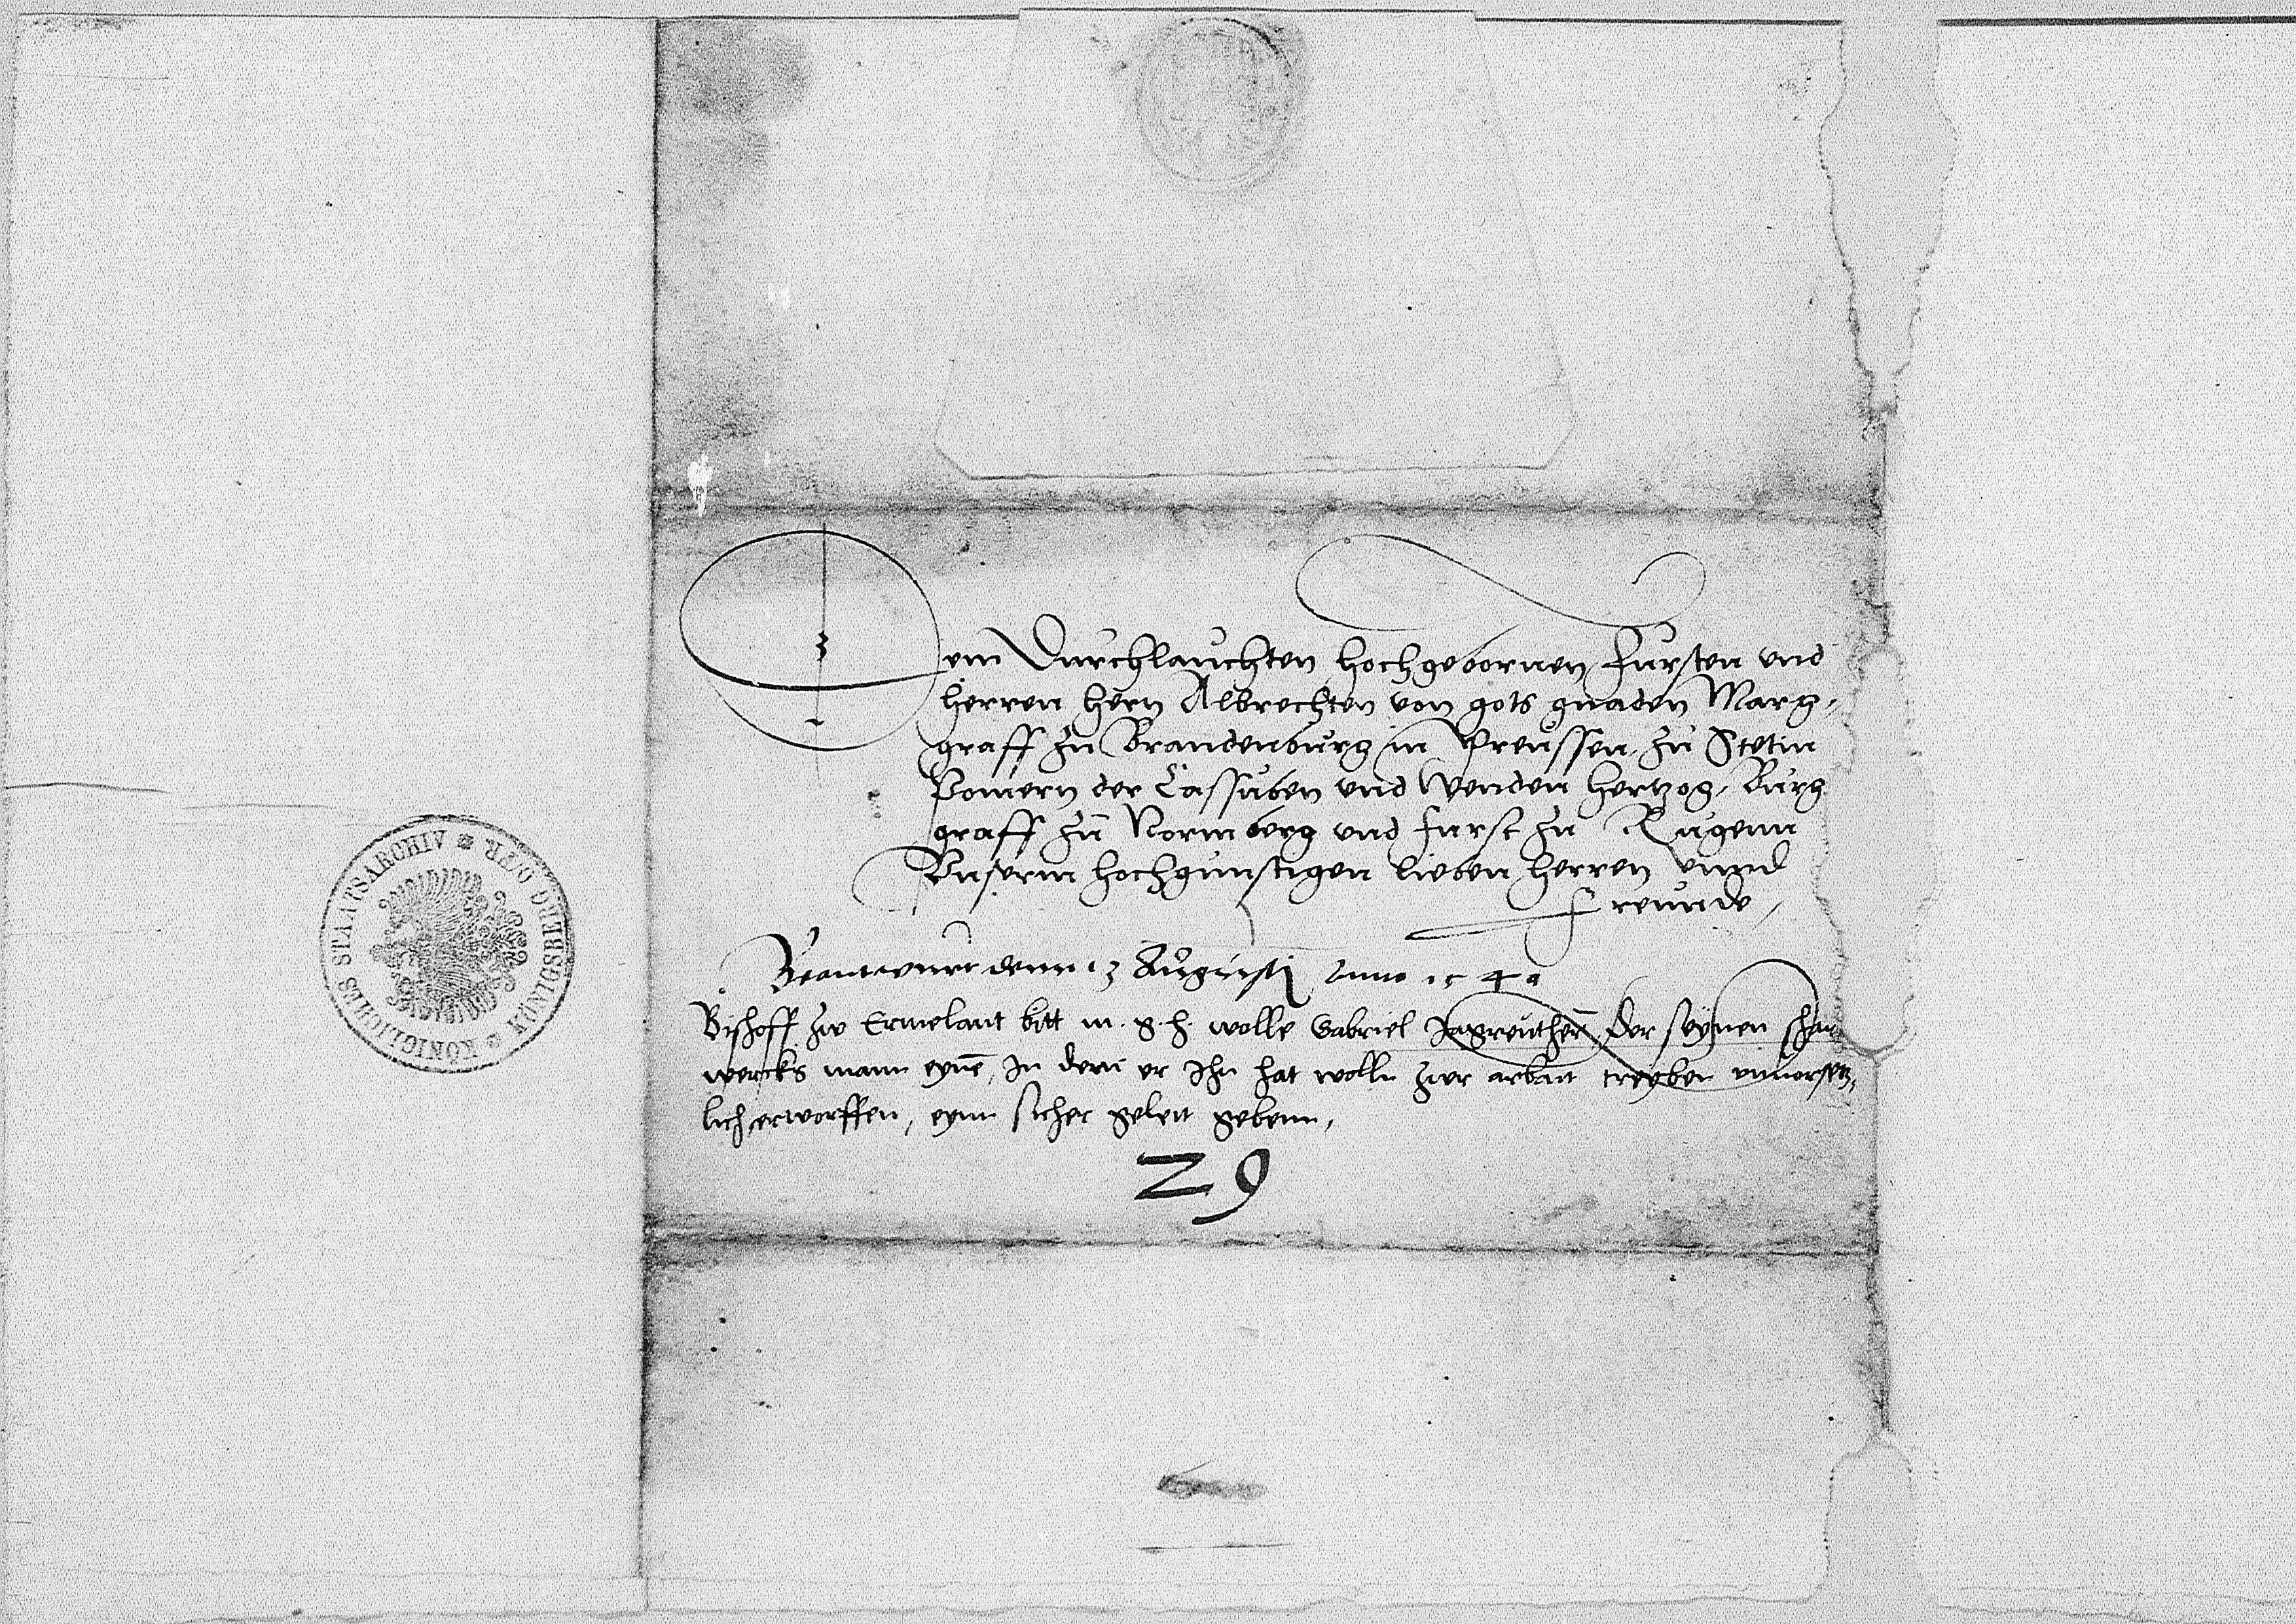 Dem Durchlauchten hochgebornen Fursten vnd
herren hern Albrechten von gots gnaden Marg,
graff zu Brandenburg in Preussen, zu Stetin
Pomern der Cassuben vnd Wenden Hertzog, Burg
graff zu Normberg vnd furst zu Rugenn
Vnserm hochgunstigen lieben herren vnnd
freunde,
Beantwurt denn 13 Augusti Anno 154
Bischoff zw Ermelant bitt m. g. h. wolle Gabriel der seynen schar
wercks mann eynē, In dem er Ihn hat wolln zwr arbait treyben vnuorsetz,
lich erworffen, eynn sicher geleit gebenn,
29
KÖNIGLICHES STAATSARCHIV * KÖNIGSBERG O/PR. *